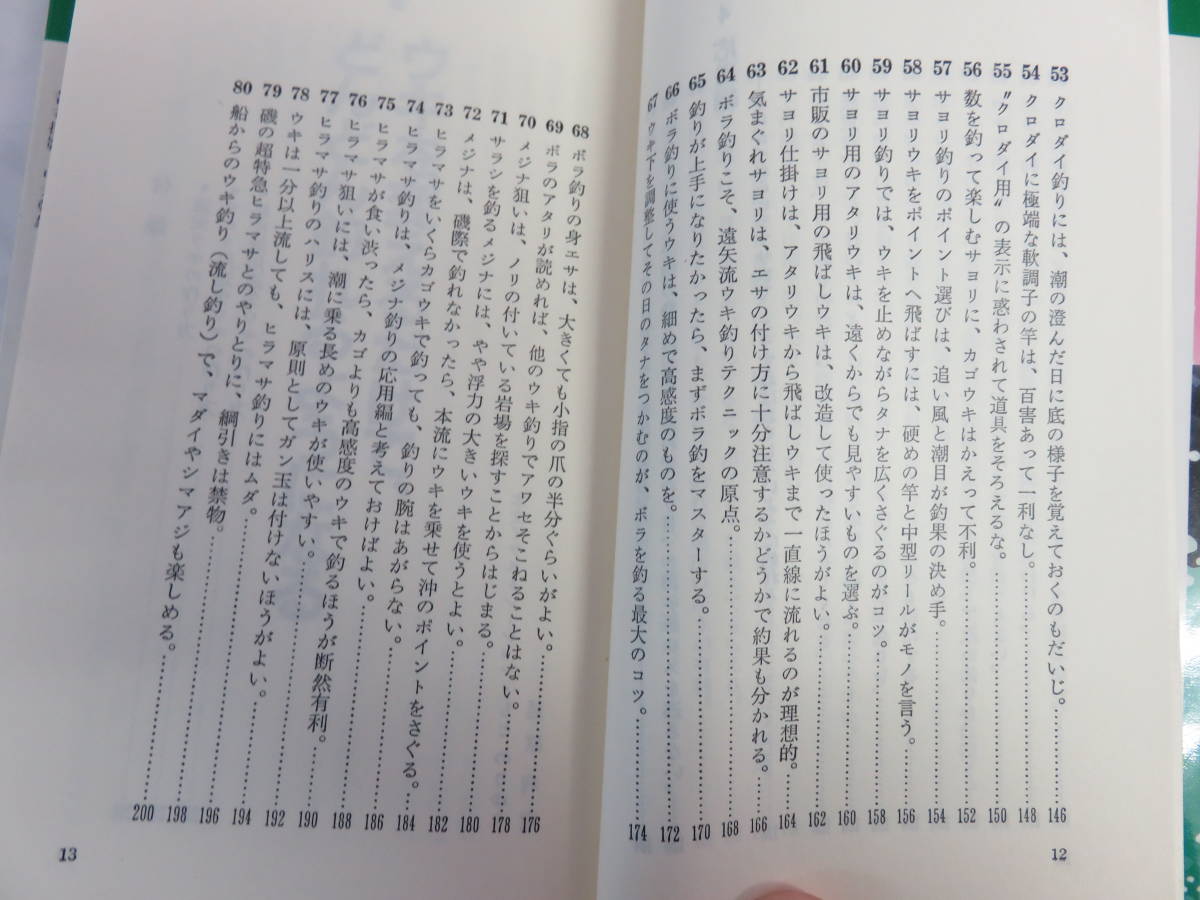 53 クロダイ釣りには、潮の澄んだ日に底の様子を覚えておくのもだいじ。……146
54 クロダイに極端な軟調子の竿は、百害あって一利なし。……148
55 〝クロダイ用〟の表示に惑わされて道具をそろえるな。……150
56 数を釣って楽しむサヨリに、カゴウキはかえって不利。……152
57 サヨリ釣りのポイント選びは、追い風と潮目が釣果の決め手。……154
58 サヨリウキをポイントへ飛ばすには、硬めの竿と中型リールがモノを言う。……156
59 サヨリ釣りでは、ウキを止めながらタナを広くさぐるのがコツ。……158
60 サヨリ用のアタリウキは、遠くからでも見やすいものを選ぶ。……160
61 市販のサヨリ用の飛ばしウキは、改造して使ったほうがよい。……162
62 サヨリ仕掛けは、アタリウキから飛ばしウキまで一直線に流れるのが理想的。……164
63 気まぐれサヨリは、エサの付け方に十分注意するかどうかで約果も分かれる。……166
64 ボラ釣りこそ、遠矢流ウキ釣りテクニックの原点。……168
65 釣りが上手になりたかったら、まずボラ釣をマスターする。……170
66 ボラ釣りに使うウキは、細めで高感度のものを。……172
67 ウキ下を調整してその日のタナをつかむのが、ボラを釣る最大のコツ。……174
12
68 ボラ釣りの身エサは、大きくても小指の爪の半分ぐらいがよい。……176
69 ボラのアタリが読めれば、他のウキ釣りでアワセそこねることはない。……178
70 メジナ狙いは、ノリの付いている岩場を探すことからはじまる。……180
71 サラシを釣るメジナには、やや浮力の大きいウキを使うとよい。……182
72 メジナは、磯際で釣れなかったら、本流にウキを乗せて沖のポイントをさぐる。……184
73 ヒラマサをいくらカゴウキで釣っても、釣りの腕はあがらない。……186
74 ヒラマサ釣りは、メジナ釣りの応用編と考えておけばよい。……188
75 ヒラマサが食い渋ったら、カゴよりも高感度のウキで釣るほうが断然有利。……190
76 ヒラマサ狙いには、潮に乗る長めのウキが使いやすい。……192
77 ヒラマサ釣りのハリスには、原則としてガン玉は付けないほうがよい。……194
78 ウキは一分以上流しても、ヒラマサ釣りにはムダ。……196
79 磯の超特急ヒラマサとのやりとりに、綱引きは禁物。……198
80 船からのウキ釣り（流し釣り）で、マダイやシマアジも楽しめる。……200
13